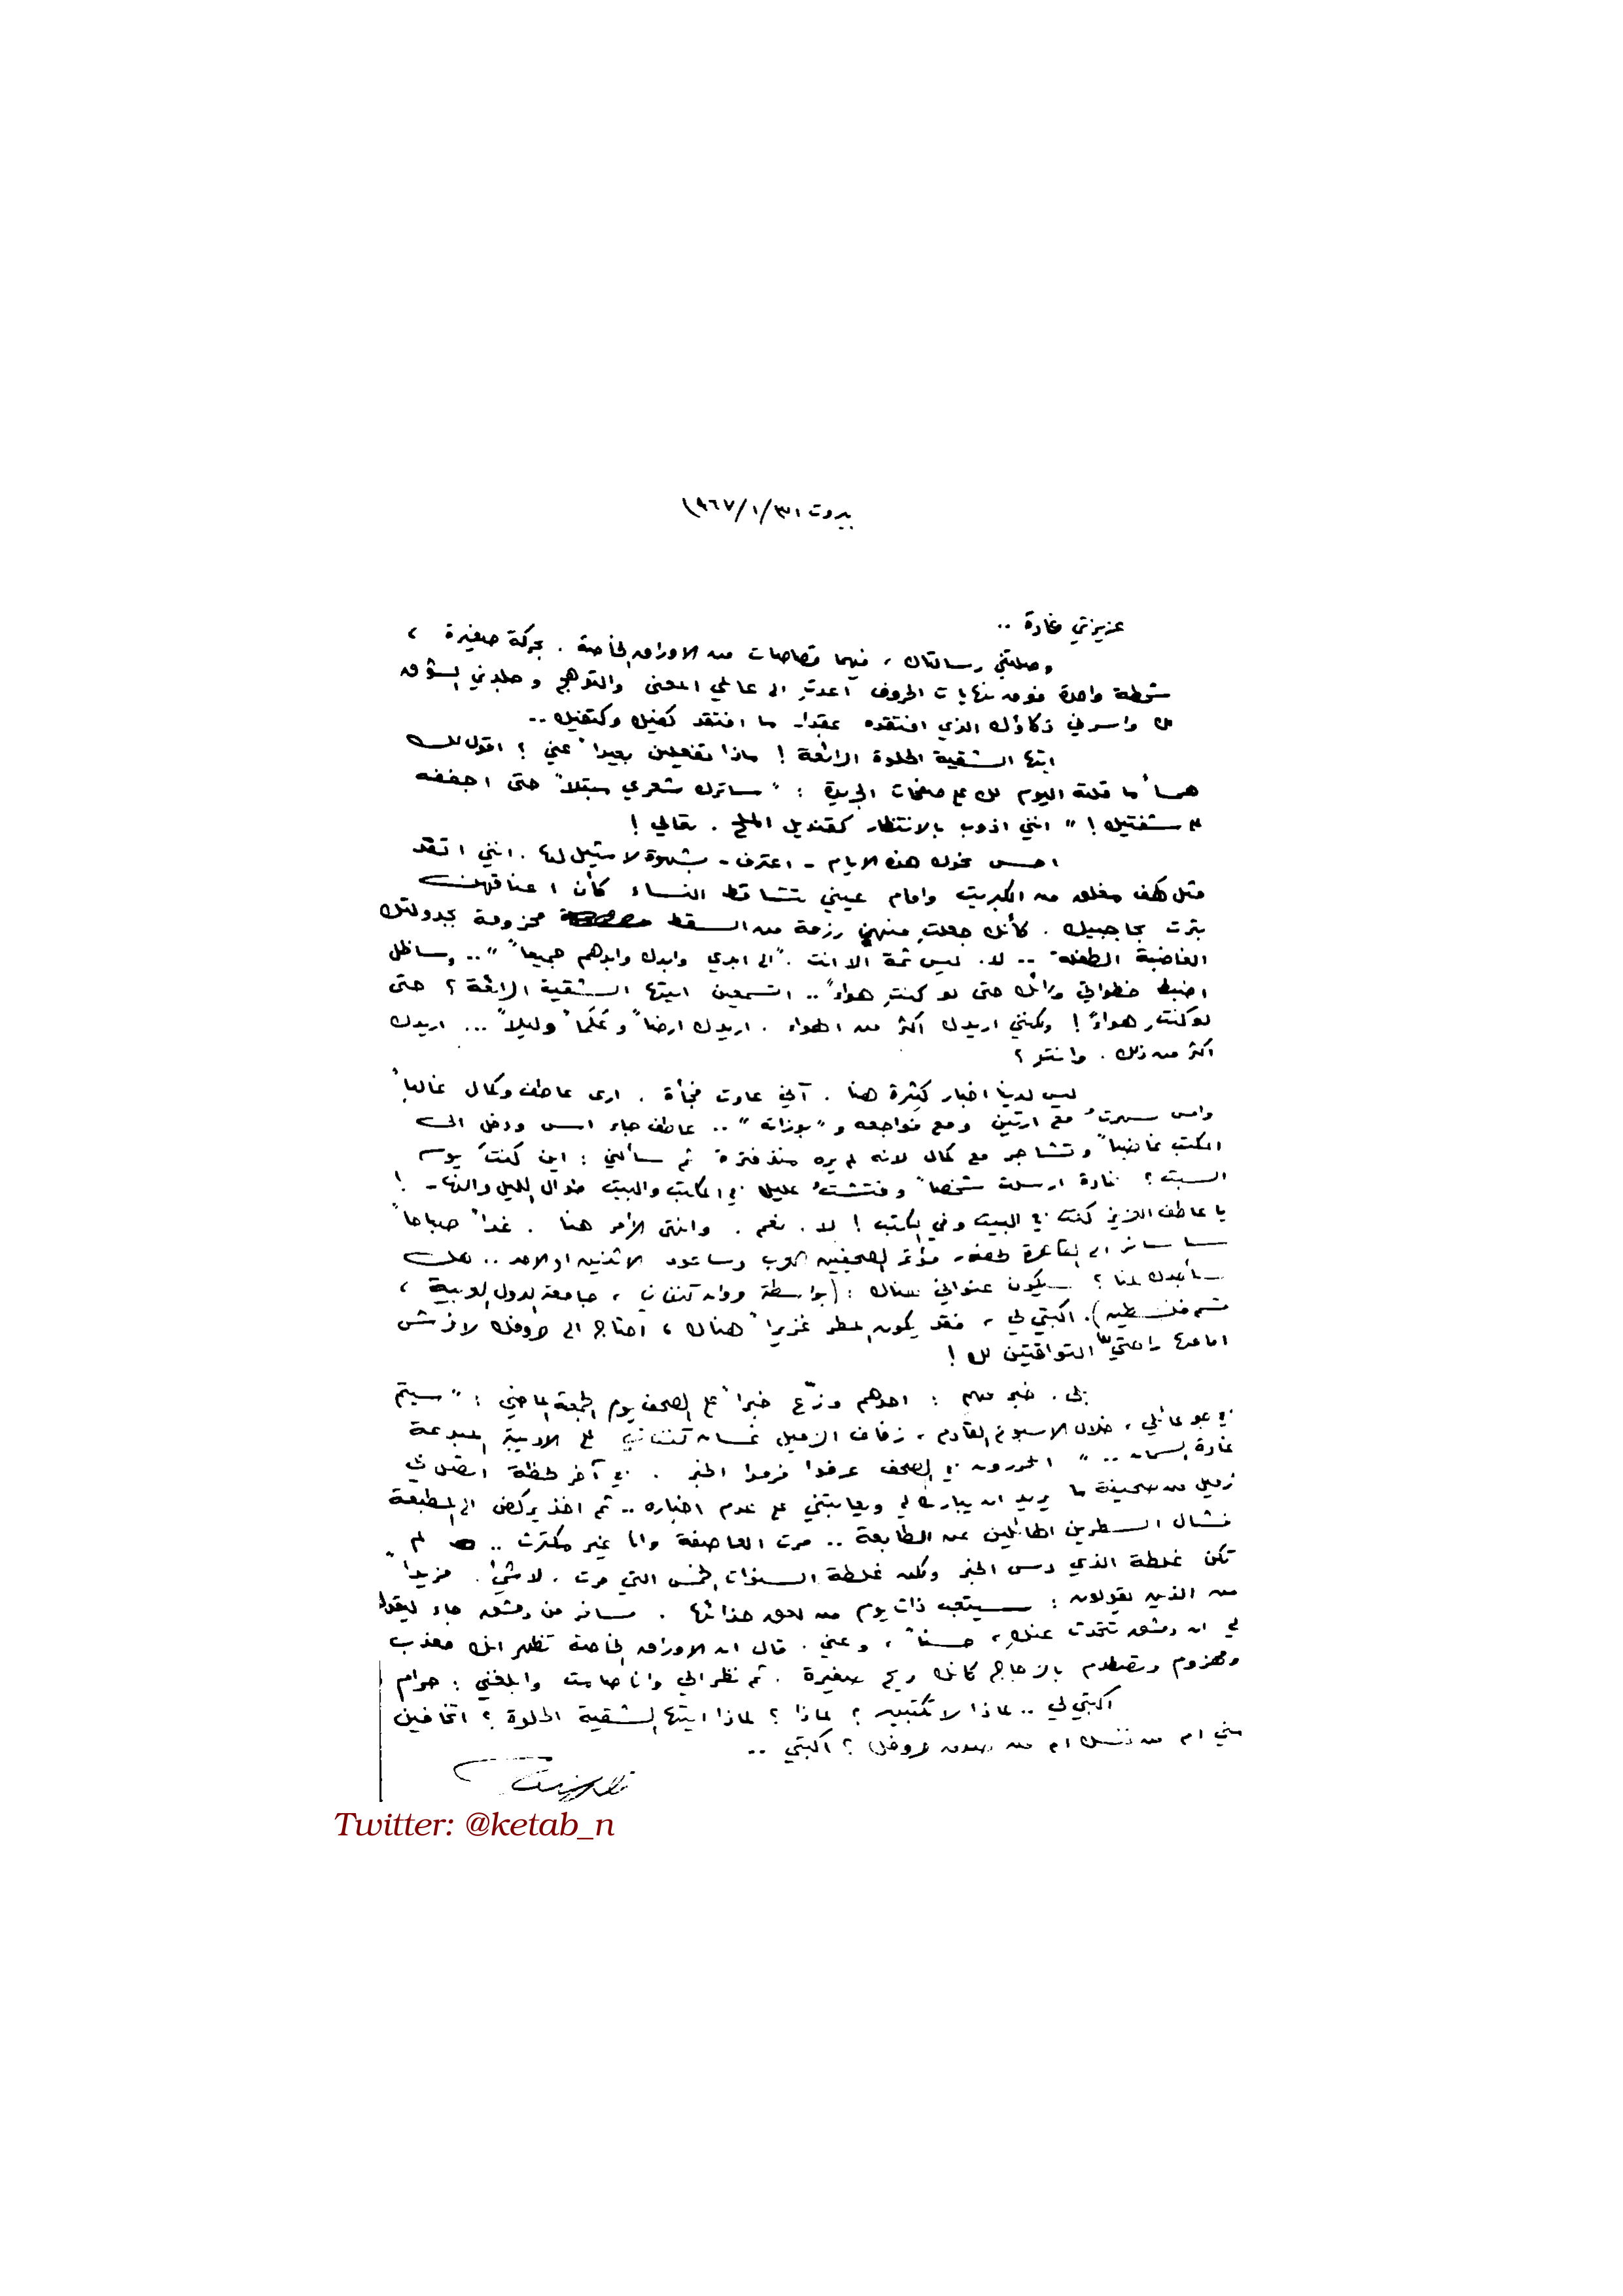 بيروت ١٩٦٧/١/٣١
عزيزتي غادة ..
وصلتني رسالتاك ، فيهما قصاصات من الاوراق الخاصة . بحركة صغيرة ،
شحطة واحدة فوق نهايات الحروف أعدتِ الى عالمي المعنى والتوهج وجلدني الشوق
لك واسرني ذكاؤك الذي افتقده بمقدار ما افتقد كفيك وكتفيك ..
ايتها الشقية الحلوة الرائعة ! ماذا تفعلين بعيداً عني ؟ اقول لك
همساً ما قلته اليوم لك على صفحات الجريدة : " ساترك شعري مبتلاً حتى اجففه
على شفتيك ! " انني اذوب بالانتظار كقنديل الملح . تعالي !
احس نحوك هذه الايام - اعترف - بشهوة لا مثيل لها . انني اتقد
مثل كهف مغلق من الكبريت وامام عيني تتساقط النساء كأن اعناقهن
بترت بحاجبيك . كأنك جعلتِ منهن رزمة من السقط محزومة بجدولتك
الغاضبة الطفلة .. لا. ليس ثمة الا انت . " الى ابدي وابدك وابدهم جميعاً " .. وساظل
اضبط خطواتي وراءك حتى لو كنتِ هواءً .. اتسمعين ايتها الشقية الرائعة ؟ حتى
لو كنتِ هواءً ! ولكنني اريدك اكثر من الهواء . اريدك ارضاً وعَلَماً وليلاً ... اريدك
اكثر من ذلك . وانتِ ؟
ليس لدينا اخبار كثيرة هنا . آني عادت فجأة . ارى عاطف وكمال غالباً
وامس سهرتُ مع ارتين ومع فواجعه و " بوزاته " .. عاطف جاء امس ودخل الى
المكتب غاضباً وتشاجر مع كمال لانه لم يره منذ فترة ثم سألني : اين كنتَ يوم
السبت ؟ غادة ارسلت شخصاً وفتشتُ عليك في المكاتب والبيت طوال الليل والنهار !
يا عاطف العزيز كنت في البيت وفي المكتب ! لا . نعم . وانتهى الأمر هنا . غداً صباحاً
سأسافر الى القاهرة لحضور مؤتمر الصحفيين العرب وساعود الاثنين او الاحد .. هل
سأجدك هنا ؟ سيكون عنواني هناك : (بواسطة مروان كنفاني ، جامعة الدول العربية ،
قسم فلسطين). اكتبي لي ، فقد يكون المطر غزيراً هناك ، احتاج الى حروفك لافرش
امامها راحتيّ التواقتين لك !
بلى . خبر مهم : احدهم وزّع خبراً على الصحف يوم الجمعة الماضي : " سيتم
في جو عائلي ، خلال الاسبوع القادم ، زفاف الزميل غسان كنفاني على الاديبة المبدعة
غادة السمان .. " المحررون في الصحف عرفوا فرموا الخبر . في آخر لحظة اتصل بي
زميل من صحيفة ما يريد ان يبارك لي ويعاتبني على عدم اخباره .. ثم اخذ يركض الى المطبعة
فشال السطرين الهائلين عن الطابعة .. مرت العاصفة وانا غير مكترث .. لم
تكن غلطة الذي دس الخبر ولكن غلطة السنوات الخمس التي مرت . لا شيء . مزيداً
من الذين يقولون : سيتعب ذات يوم من لعق حذائها . مسافر من دمشق جاء ليقول
لي ان دمشق تتحدث عنكِ ، حسناً ، وعني . قال ان الاوراق الخاصة تظهر انك معذب
ومهزوم وتصطدم بالزجاج كانك ريح صغيرة . ثم نظر الي وانا صامت وابلغني : حرام
اكتبي لي .. لماذا لا تكتبين ؟ لماذا ؟ لماذا ايتها الشقية الحلوة ؟ اتخافين
مني ام من نفسك ام من صدق حروفك ؟ اكتبي ..
Twitter: @ketab_n